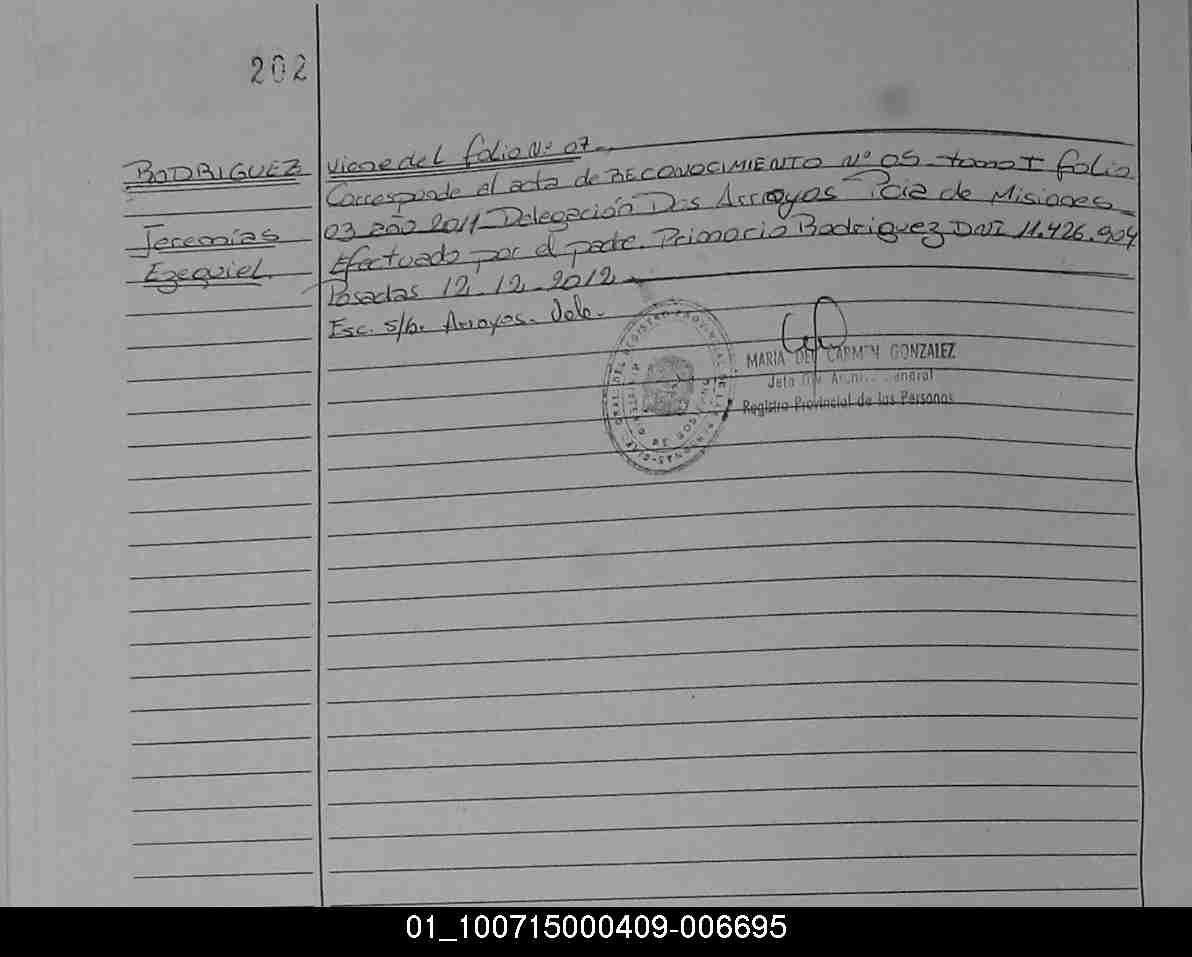 202
RODRIGUEZ
Jeremías
Ezequiel.
Viene del folio Nº 07
Corresponde al acta de RECONOCIMIENTO Nº 05 tomo I folio
03 año 2011 Delegación Dos Arroyos Pcia de Misiones
Efectuado por el padre. Primario Rodriguez DNI 11.426.904
Posadas 12.12.2012
Esc. s/b. Arroyos. Vale.
MARIA DEL CARMEN GONZALEZ
Registro Provincial de las Personas
01_100715000409-006695